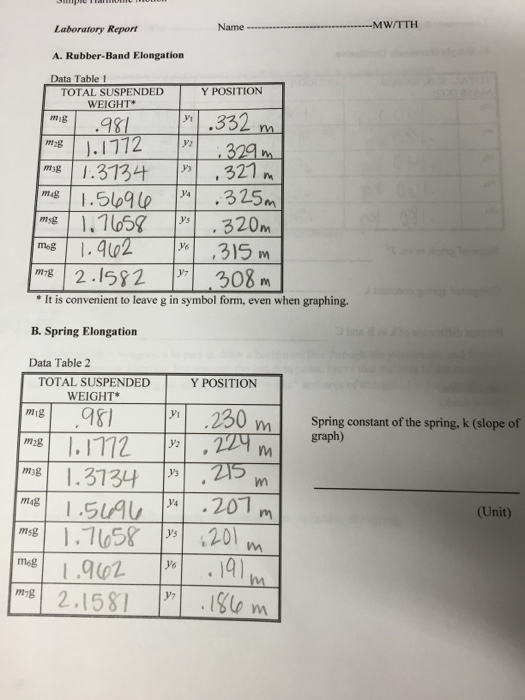 Laboratory Report Name -MW/TTH
A. Rubber-Band Elongation
Data Table 1
TOTAL SUSPENDED WEIGHT* Y POSITION
m₁g .981 y₁ .332 m
m₂g 1.1772 y₂ .329 m
m₃g 1.3734 y₃ .327 m
m₄g 1.5696 y₄ .325m
m₅g 1.7658 y₅ .320m
m₆g 1.962 y₆ .315 m
m₇g 2.1582 y₇ .308 m
* It is convenient to leave g in symbol form, even when graphing.
B. Spring Elongation
Data Table 2
TOTAL SUSPENDED WEIGHT* Y POSITION
m₁g .981 y₁ .230 m
m₂g 1.1772 y₂ .224 m
m₃g 1.3734 y₃ .215 m
m₄g 1.5696 y₄ .207 m
m₅g 1.7658 y₅ .201 m
m₆g 1.962 y₆ .191 m
m₇g 2.1581 y₇ .186 m
Spring constant of the spring, k (slope of
graph)
(Unit)